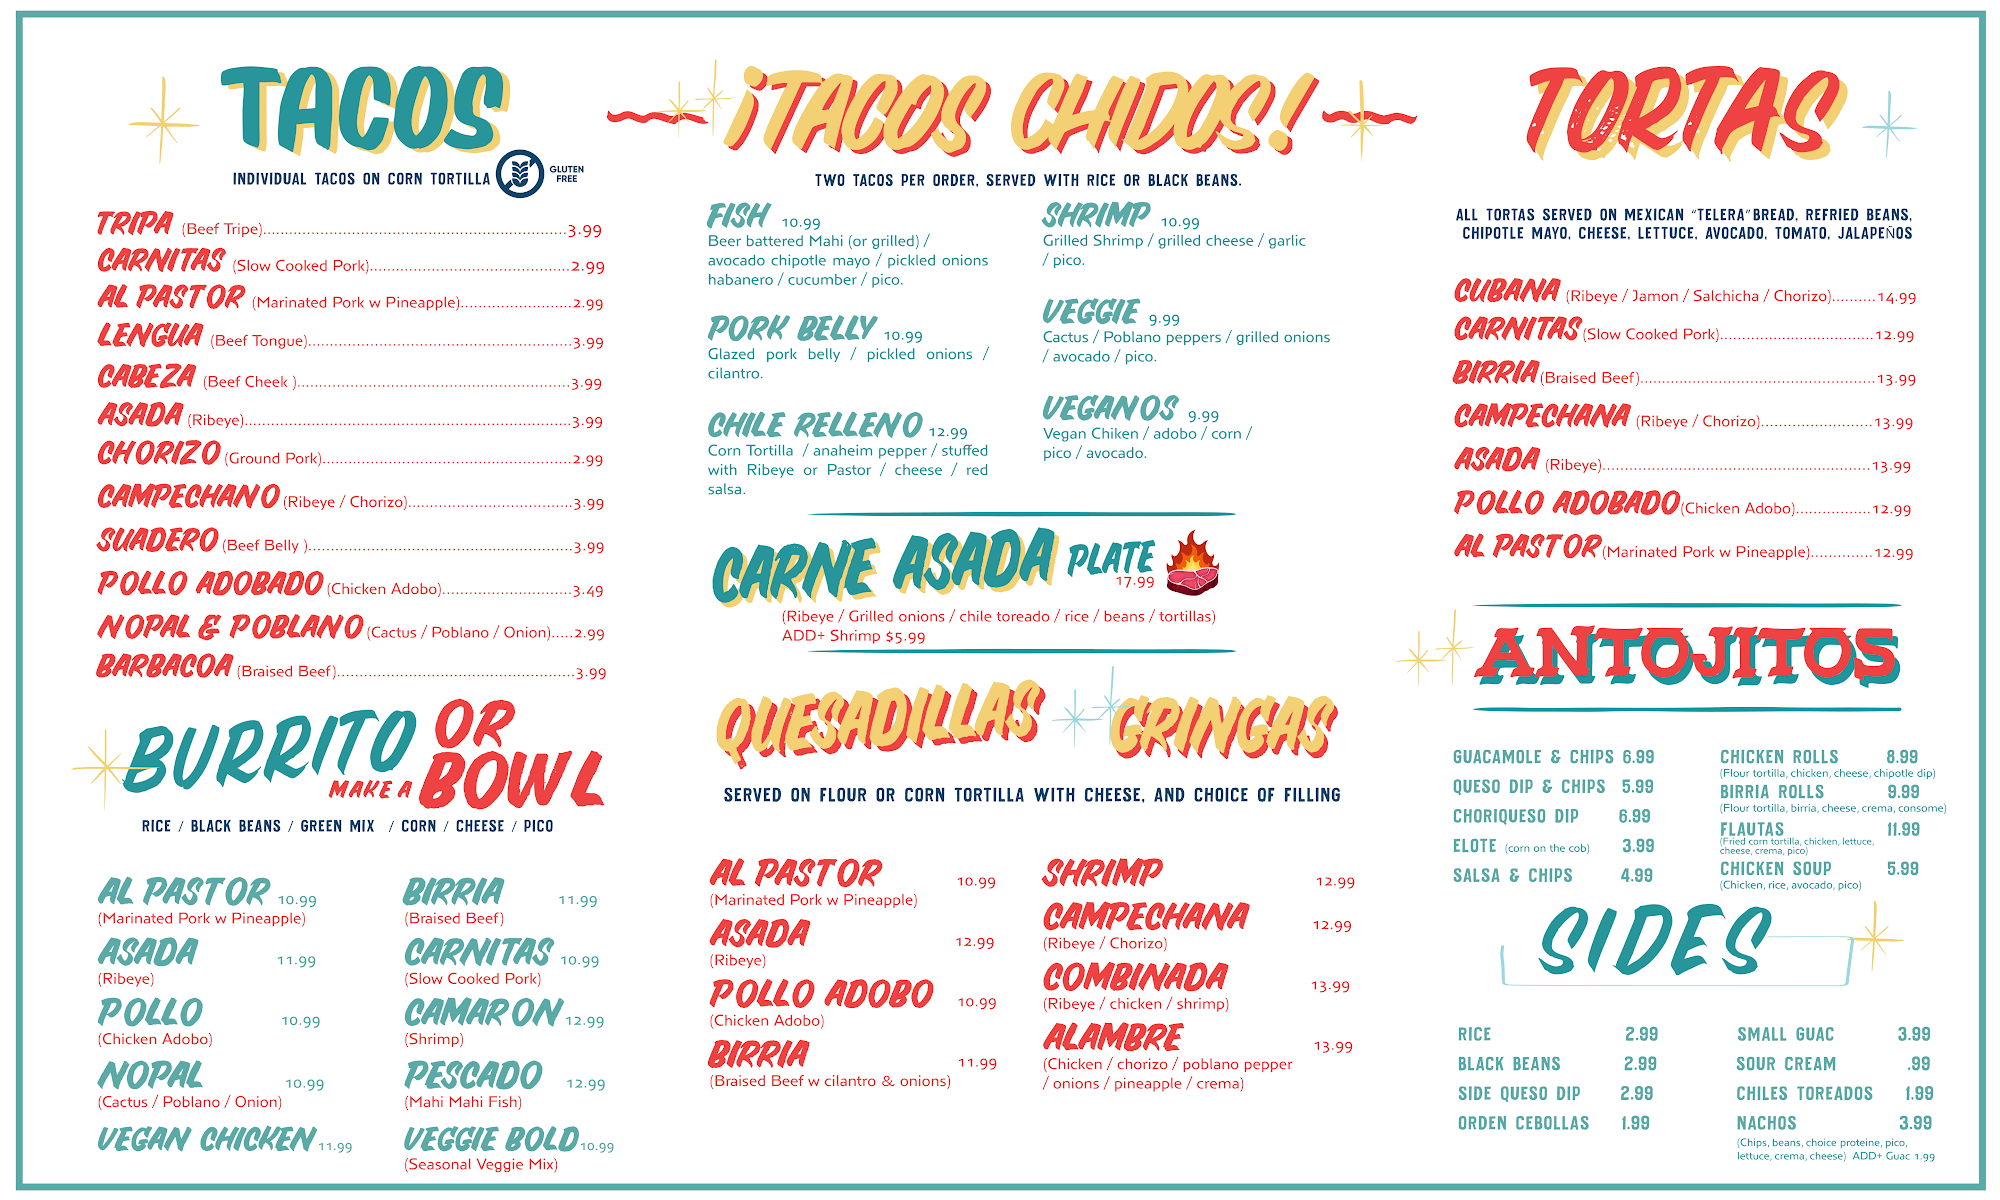 TACOS
INDIVIDUAL TACOS ON CORN TORTILLA
GLUTEN
FREE
TRIPA (Beef Tripe)......................................................................3.99
CARNITAS (Slow Cooked Pork)..............................................2.99
AL PASTOR (Marinated Pork w Pineapple).........................2.99
LENGUA (Beef Tongue)............................................................3.99
CABEZA (Beef Cheek )..............................................................3.99
ASADA (Ribeye)..........................................................................3.99
CHORIZO (Ground Pork).........................................................2.99
CAMPECHANO (Ribeye / Chorizo).....................................3.99
SUADERO (Beef Belly )............................................................3.99
POLLO ADOBADO (Chicken Adobo).............................3.49
NOPAL & POBLANO (Cactus / Poblano / Onion).....2.99
BARBACOA (Braised Beef)......................................................3.99
BURRITO OR
MAKE A BOWL
RICE / BLACK BEANS / GREEN MIX / CORN / CHEESE / PICO
AL PASTOR 10.99
(Marinated Pork w Pineapple)
ASADA 11.99
(Ribeye)
POLLO 10.99
(Chicken Adobo)
NOPAL 10.99
(Cactus / Poblano / Onion)
VEGAN CHICKEN 11.99
BIRRIA 11.99
(Braised Beef)
CARNITAS 10.99
(Slow Cooked Pork)
CAMARON 12.99
(Shrimp)
PESCADO 12.99
(Mahi Mahi Fish)
VEGGIE BOLD 10.99
(Seasonal Veggie Mix)
¡TACOS CHIDOS!
TWO TACOS PER ORDER, SERVED WITH RICE OR BLACK BEANS.
FISH 10.99
Beer battered Mahi (or grilled) /
avocado chipotle mayo / pickled onions
habanero / cucumber / pico.
PORK BELLY 10.99
Glazed pork belly / pickled onions /
cilantro.
CHILE RELLENO 12.99
Corn Tortilla / anaheim pepper / stuffed
with Ribeye or Pastor / cheese / red
salsa.
SHRIMP 10.99
Grilled Shrimp / grilled cheese / garlic
/ pico.
VEGGIE 9.99
Cactus / Poblano peppers / grilled onions
/ avocado / pico.
VEGANOS 9.99
Vegan Chiken / adobo / corn /
pico / avocado.
CARNE ASADA PLATE
17.99
(Ribeye / Grilled onions / chile toreado / rice / beans / tortillas)
ADD+ Shrimp $5.99
QUESADILLAS GRINGAS
SERVED ON FLOUR OR CORN TORTILLA WITH CHEESE, AND CHOICE OF FILLING
AL PASTOR 10.99
(Marinated Pork w Pineapple)
ASADA 12.99
(Ribeye)
POLLO ADOBO 10.99
(Chicken Adobo)
BIRRIA 11.99
(Braised Beef w cilantro & onions)
SHRIMP 12.99
CAMPECHANA 12.99
(Ribeye / Chorizo)
COMBINADA 13.99
(Ribeye / chicken / shrimp)
ALAMBRE 13.99
(Chicken / chorizo / poblano pepper
/ onions / pineapple / crema)
TORTAS
ALL TORTAS SERVED ON MEXICAN "TELERA"BREAD, REFRIED BEANS,
CHIPOTLE MAYO, CHEESE, LETTUCE, AVOCADO, TOMATO, JALAPEÑOS
CUBANA (Ribeye / Jamon / Salchicha / Chorizo)..........14.99
CARNITAS (Slow Cooked Pork)..................................12.99
BIRRIA (Braised Beef).....................................................13.99
CAMPECHANA (Ribeye / Chorizo).........................13.99
ASADA (Ribeye)............................................................13.99
POLLO ADOBADO (Chicken Adobo).................12.99
AL PASTOR (Marinated Pork w Pineapple)..............12.99
ANTOJITOS
GUACAMOLE & CHIPS 6.99
QUESO DIP & CHIPS 5.99
CHORIQUESO DIP 6.99
ELOTE (corn on the cob) 3.99
SALSA & CHIPS 4.99
CHICKEN ROLLS 8.99
(Flour tortilla, chicken, cheese, chipotle dip)
BIRRIA ROLLS 9.99
(Flour tortilla, birria, cheese, crema, consome)
FLAUTAS 11.99
(Fried corn tortilla, chicken, lettuce,
cheese, crema, pico)
CHICKEN SOUP 5.99
(Chicken, rice, avocado, pico)
SIDES
RICE 2.99
BLACK BEANS 2.99
SIDE QUESO DIP 2.99
ORDEN CEBOLLAS 1.99
SMALL GUAC 3.99
SOUR CREAM .99
CHILES TOREADOS 1.99
NACHOS 3.99
(Chips, beans, choice proteine, pico,
lettuce, crema, cheese) ADD+ Guac 1.99